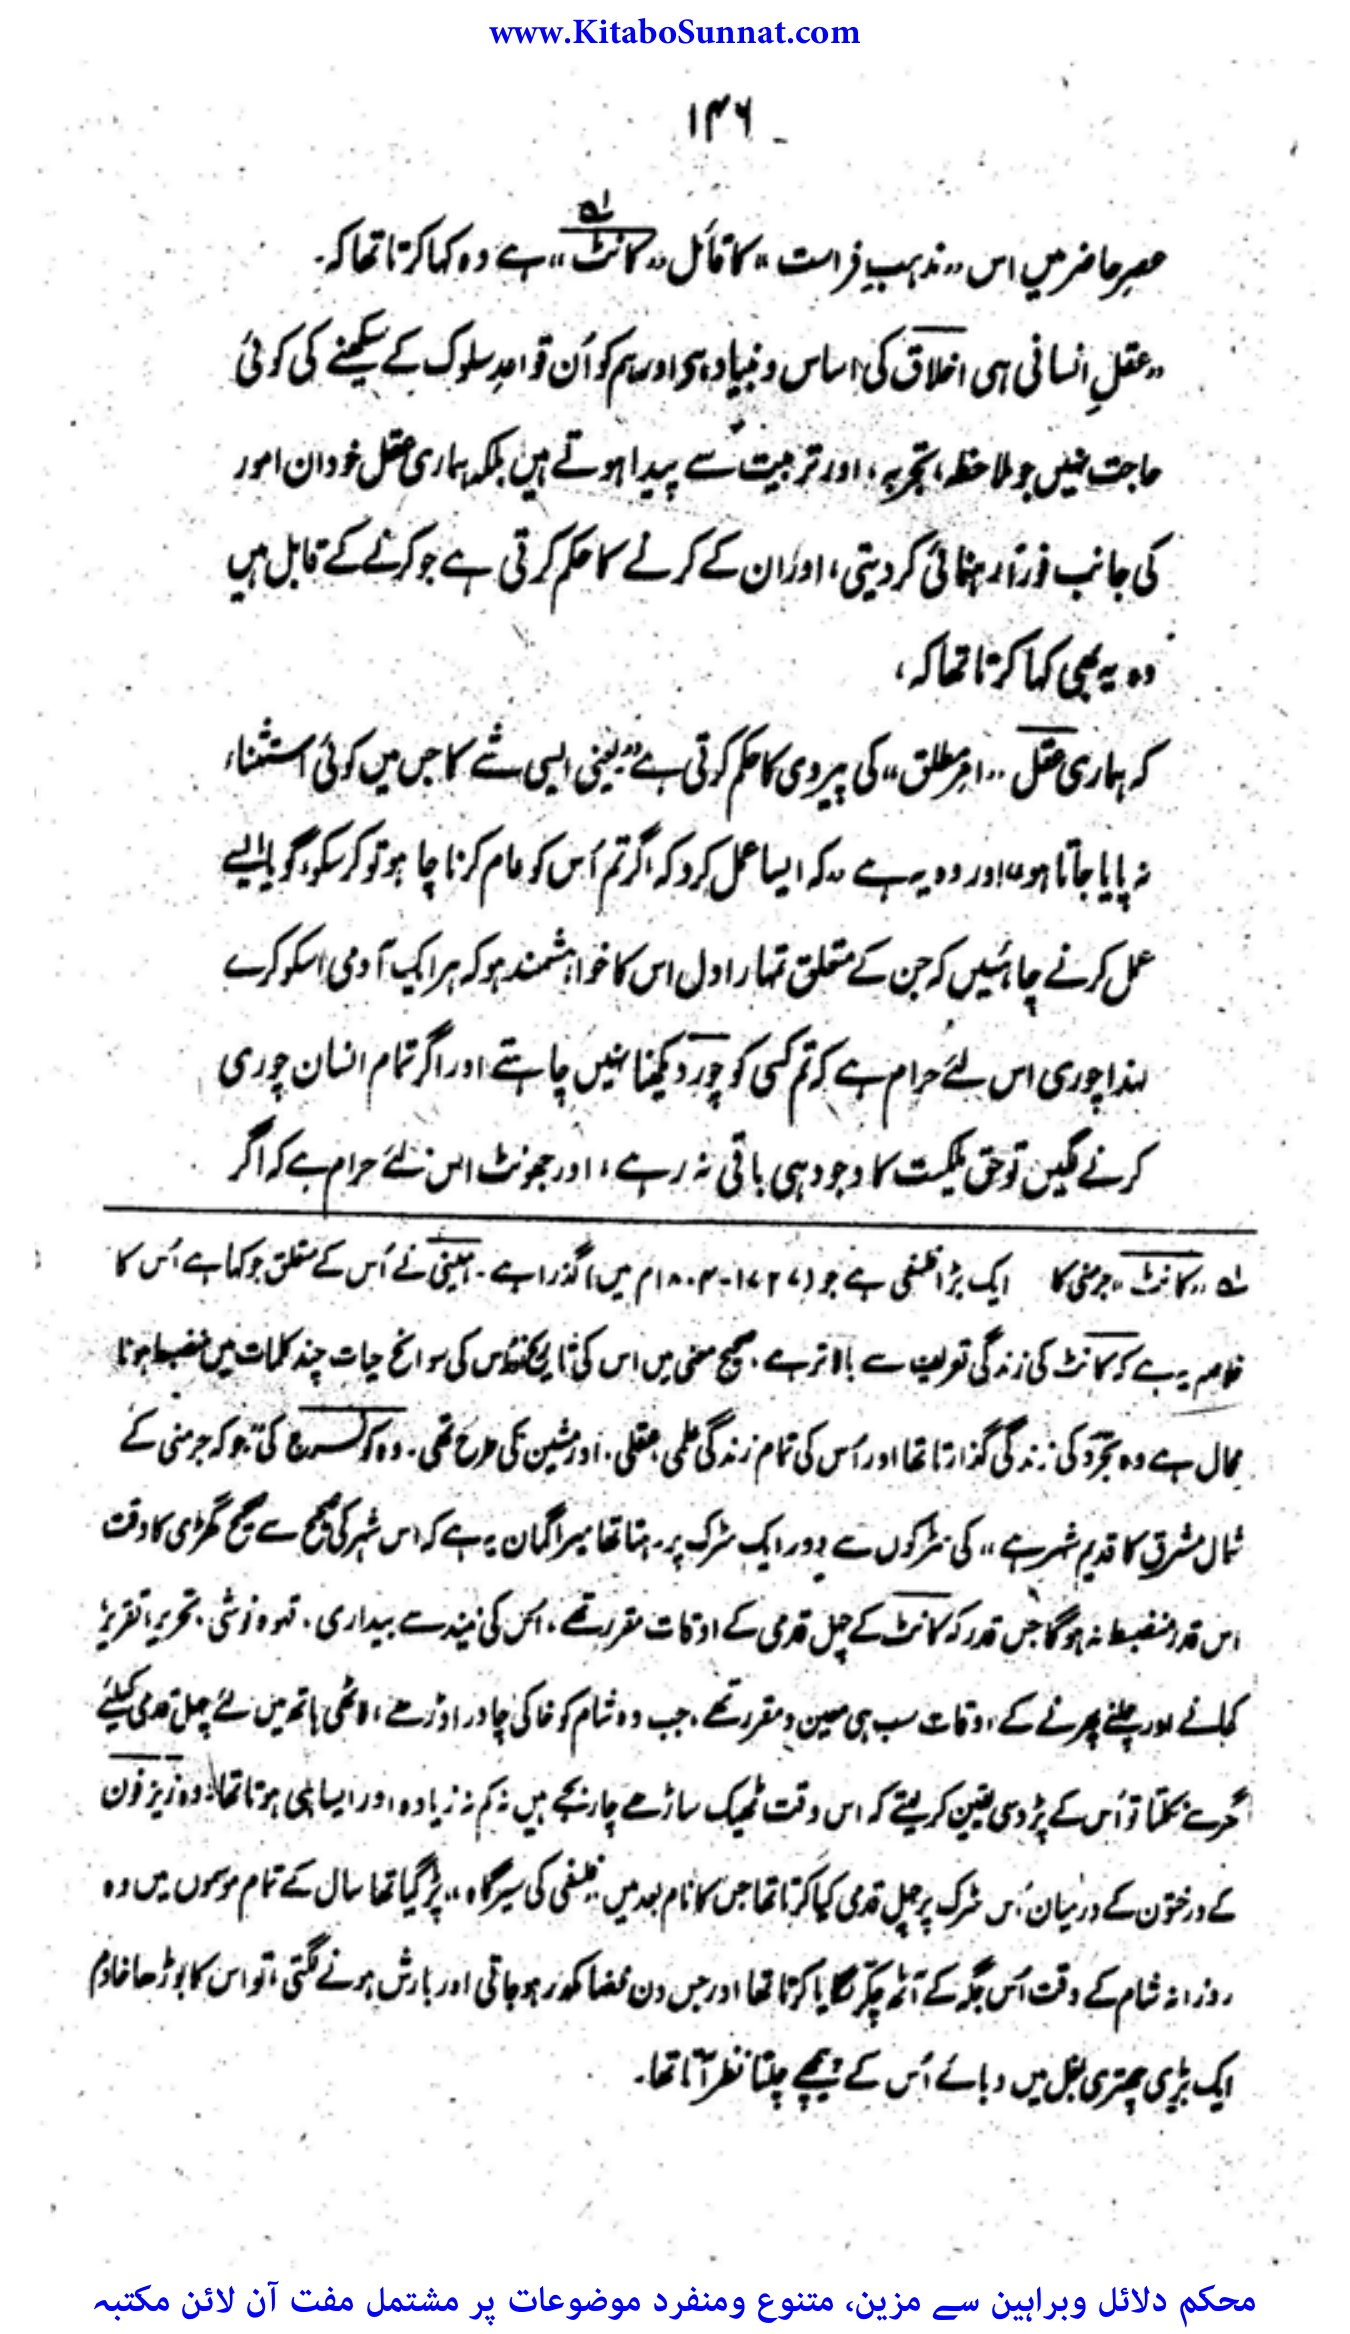 www.KitaboSunnat.com
۱۴۶
عصرِ حاضر میں اس ،،مذہبِ فراست،، کا قائل ،،کانٹ،، ہے وہ کہا کرتا تھا کہ۔
،،عقلِ انسانی ہی اخلاق کی اساس و بنیاد ہی اور ہم کو اُن قواعدِ سلوک کے سیکھنے کی کوئی
حاجت نہیں جو ملاحظہ، تجربہ، اور تربیت سے پیدا ہوتے ہیں بلکہ ہماری عقل خود ان امور
کی جانب فوراً رہنمائی کر دیتی، اور اُن کے کرنے کا حکم کرتی ہے جو کرنے کے قابل ہیں
وہ یہ بھی کہا کرتا تھا کہ،
کہ ہماری عقل ،،امرِ مطلق،، کی پیروی کا حکم کرتی ہے،، یعنی ایسی شے کا جس میں کوئی استثناء
نہ پایا جاتا ہو،، اور وہ یہ ہے ،،کہ ایسا عمل کرو کہ اگر تم اُس کو عام کرنا چاہو تو کر سکو، گویا ایسے
عمل کرنے چاہئیں کہ جن کے متعلق تمہارا دل اس کا خواہشمند ہو کہ ہر ایک آدمی اسکو کرے
لہذا چوری اس لئے حرام ہے کہ تم کسی کو چور دیکھنا نہیں چاہتے اور اگر تمام انسان چوری
کرنے لگیں تو حق ملکیت کا وجود ہی باقی نہ رہے، اور جھونٹ اس لئے حرام ہے کہ اگر
لہ ،،کانٹ،، جرمنی کا ایک بڑا فلسفی ہے جو (۱۷۲۷-۱۸۰۴م میں) گذرا ہے۔ نے اُس کے متعلق جو کہا ہے اُس کا
خلاصہ یہ ہے کہ کانٹ کی زندگی تعریف سے بالاتر ہے۔ صحیح معنی میں اس کی تاریخ کی سوانح حیات چند کلمات میں منضبط ہونا
محال ہے وہ تجرّد کی زندگی گذارتا تھا اور اُس کی تمام زندگی علمی، عقلی، اور مشین کی طرح تھی۔ وہ کی ،،جو کہ جرمنی کے
شمال مشرق کا قدیم شہر ہے،، کی سڑکوں سے دور ایک سڑک پر رہتا تھا میرا گمان یہ ہے کہ اس شہر کی صحیح سے صحیح گھڑی کا وقت
اس قدر منضبط نہ ہوگا جس قدر کہ کانٹ کے چہل قدمی کے اوقات مقرر تھے، اس کی نیند سے بیداری، قہوہ نوشی، تحریر، تقریر
کھانے اور چلنے پھرنے کے اوقات سب ہی معین و مقرر تھے، جب وہ شام کو خاکی چادر اوڑھے، لاٹھی ہاتھ میں لئے چہل قدمی کیلئے
گھر سے نکلتا تو اُس کے پڑوسی یقین کر لیتے کہ اس وقت ٹھیک ساڑھے چار بجے ہیں نہ کم نہ زیادہ اور ایسا ہی ہوتا تھا، وہ زیزفون
کے درختوں کے درمیان اُس سڑک پر چہل قدمی کیا کرتا تھا جس کا نام بعد میں ،،فلسفی کی سیرگاہ،، پڑ گیا تھا سال کے تمام موسموں میں وہ
روزانہ شام کے وقت اُس جگہ کے آٹھ چکّر لگایا کرتا تھا اور جس دن فضا مکدر ہو جاتی اور بارش ہونے لگتی، تو اس کا بوڑھا خادم
ایک بڑی چھتری بغل میں دبائے اُس کے پیچھے چلتا نظر آتا تھا۔
محکم دلائل وبراہین سے مزین، متنوع ومنفرد موضوعات پر مشتمل مفت آن لائن مکتبہ